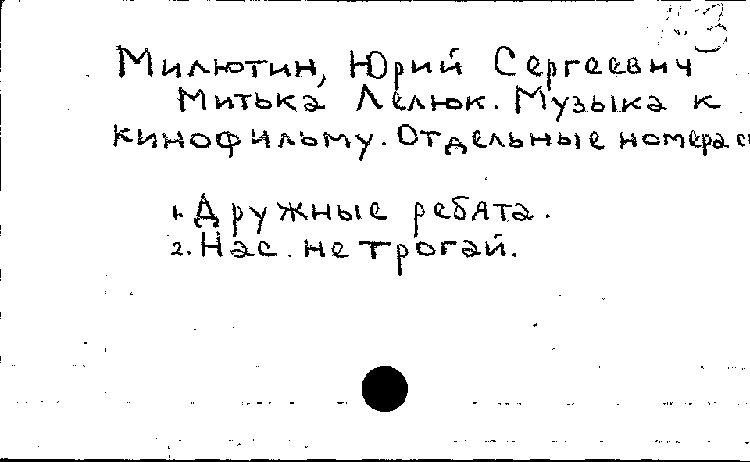 Милютин, Юрий Сергеевич
Митька Лелюк. Музыка к
кинофильму. Отдельные номера
1. Дружные ребята.
2. Нас не трогай.